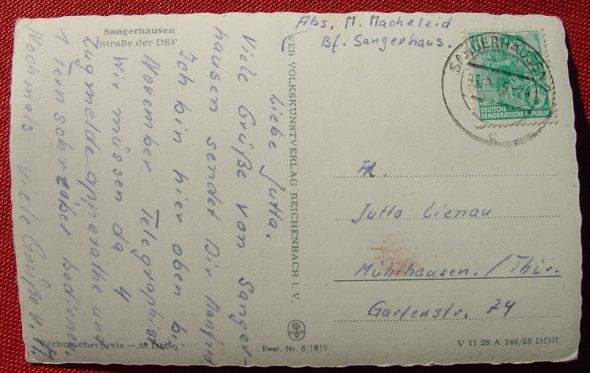 Sangerhausen
Straße der DSF
Abs. M. Macheleid
Bf. Sangerhaus.
SANGERHAUSEN 2
DEUTSCHE
DEMOKRATISCHE REPUBLIK
VEB VOLKSKUNSTVERLAG REICHENBACH i. V.
Liebe Jutta.
Viele Grüße von Sanger-
hausen sendet Dir Manfred
Ich bin hier oben bis
November Telegraphist
Wir müssen da 4
Zugmeldeapperathe und
1 Fernschreiber bedienen.
Nochmals Viele Grüße v. M.
Frl.
Jutta Lienau
Mühlhausen. /Thür.
Gartenstr. 74
Verbraucherpreis —,20 DM
Best.-Nr. 8/1819
V 11 28 A 246/58 DDR